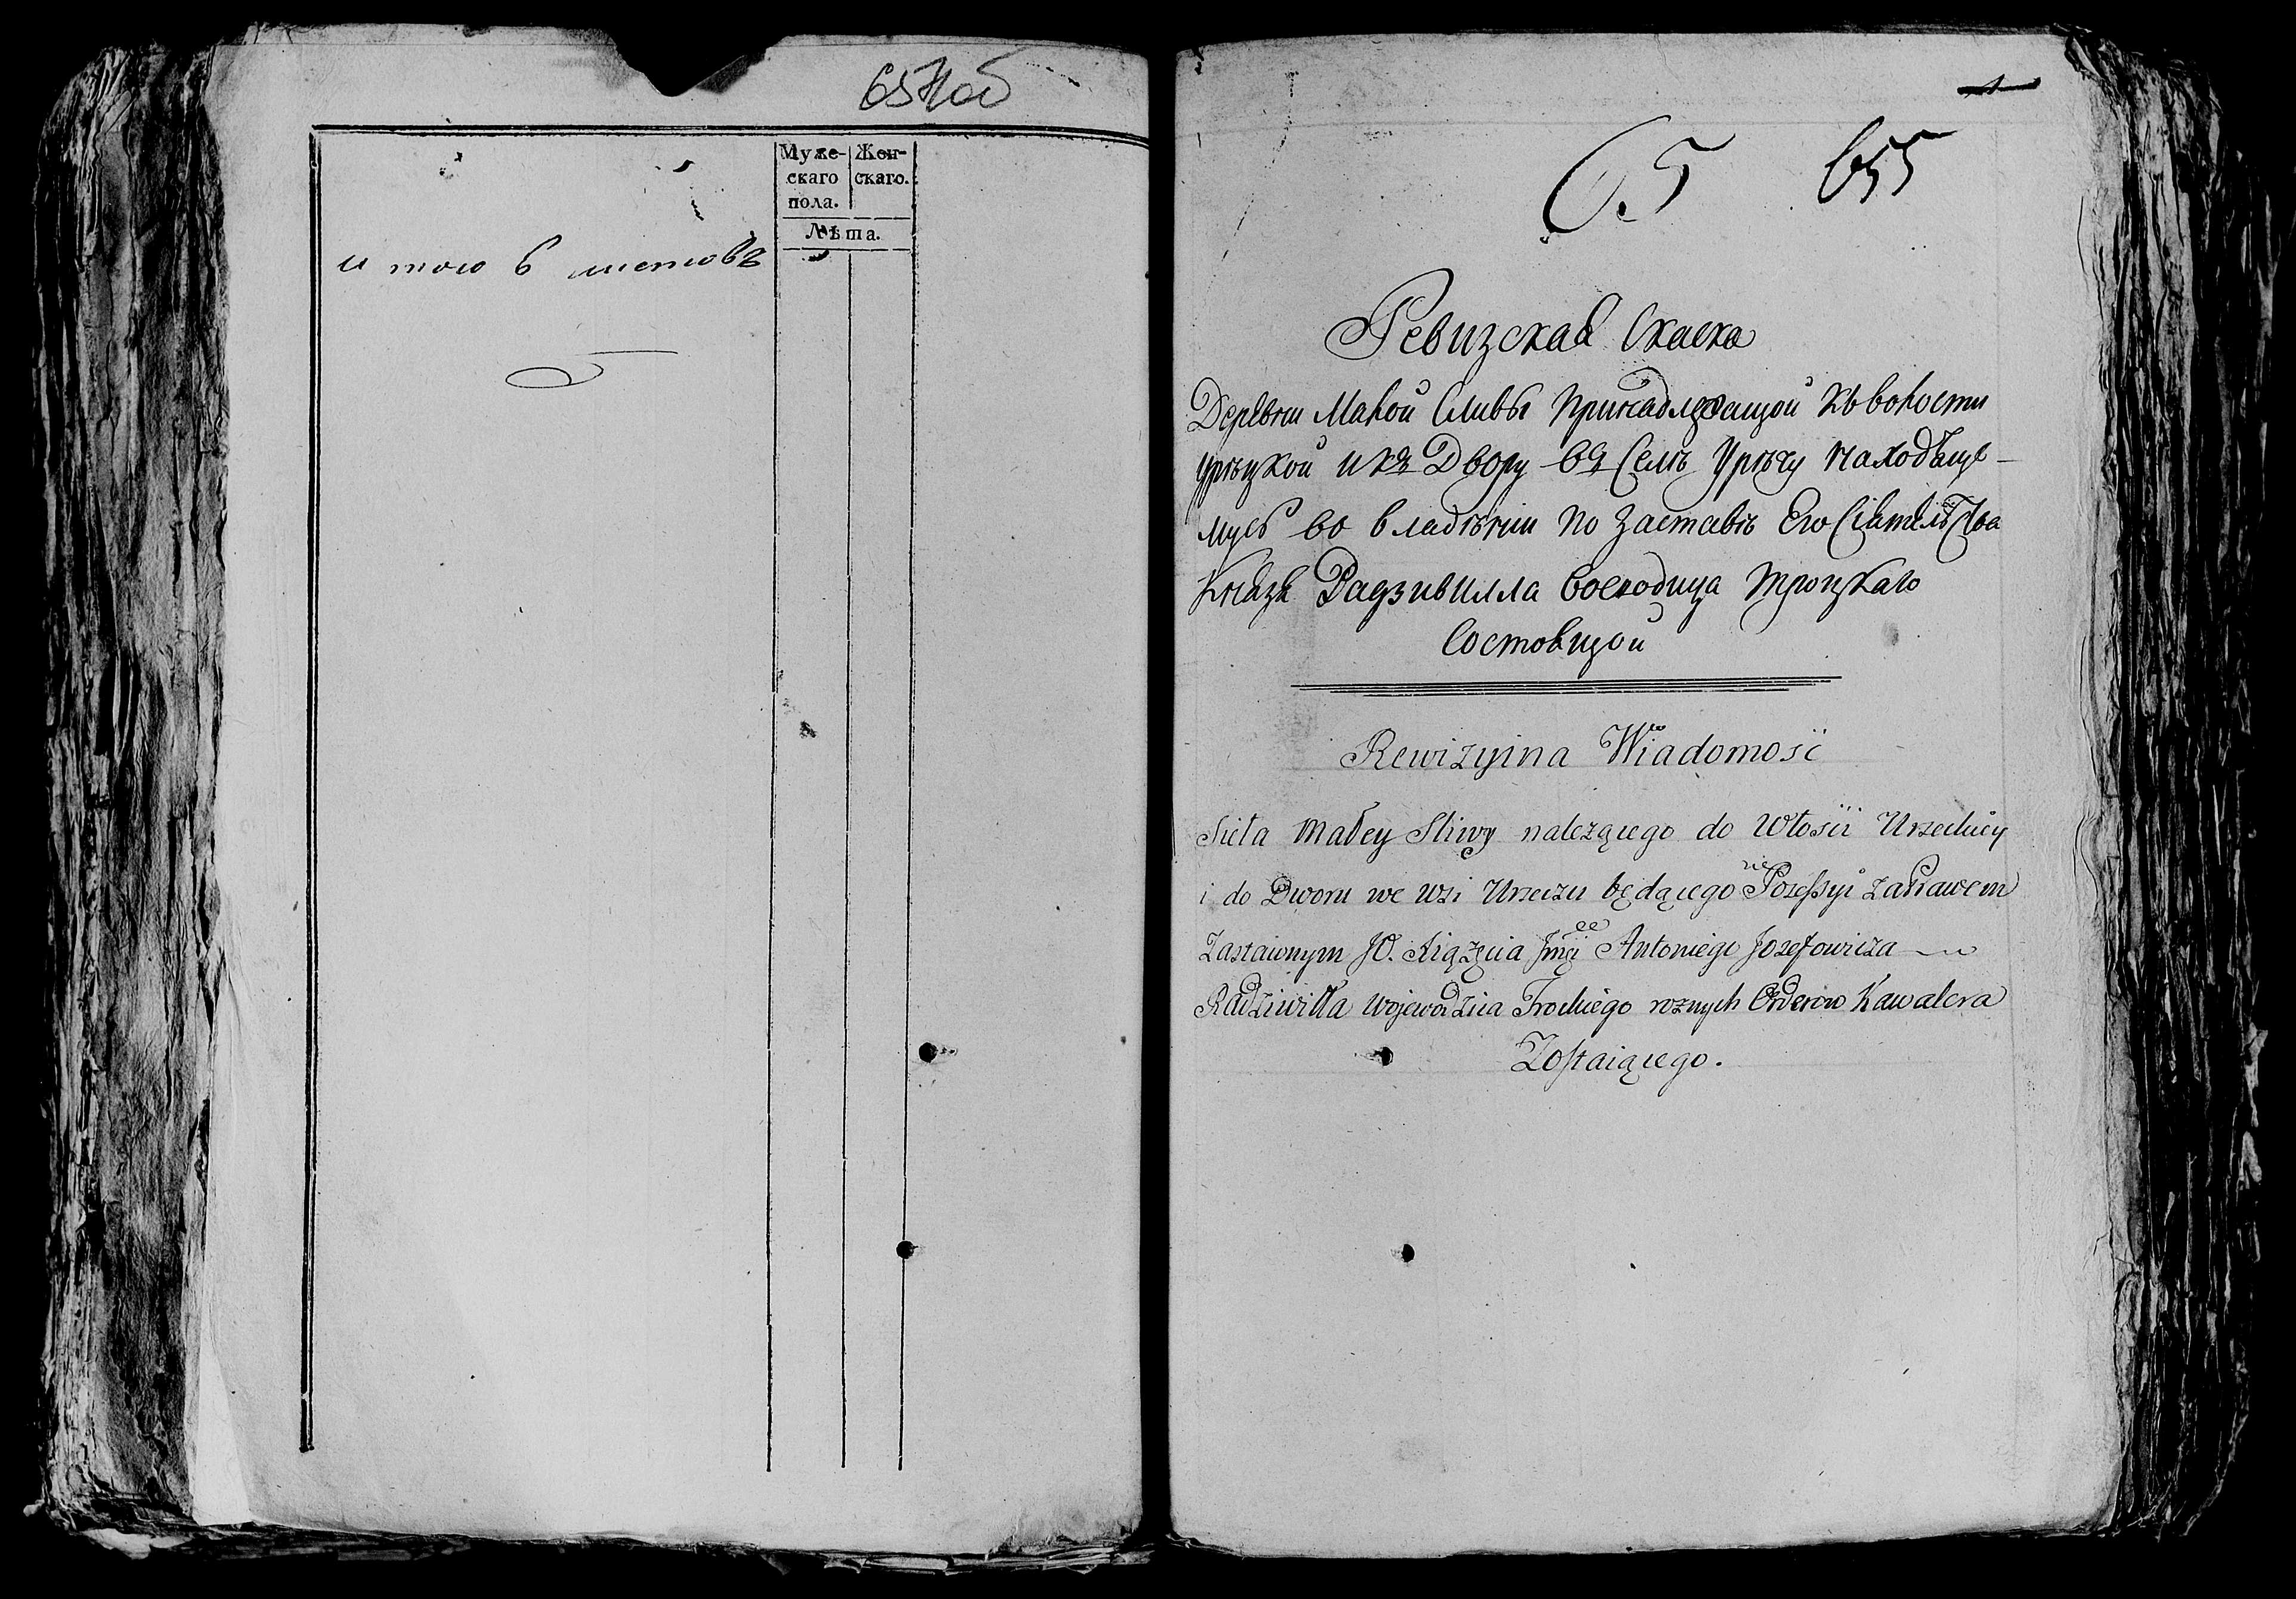 654 об
Муже-
скаго
пола.
Жен-
скаго.
Лѣта.
и того 6 листовъ
1
65 655
Ревизская Скаска
Деревни Малой Сливы Принадлежащой къ волости
Урѣцкой и къ Двору въ Селѣ Урѣчу находяще-
муся во владѣнии по Заставѣ Его Сіятельства
Князя Радзивилла Воеводица Троцкаго
Состоящой
Rewizyina Wiadomość
Sieła Małey Sliwy nalezącego do Włości Urzeckiey
i do Dworu we wsi Urzeczu będącego w Possessyi za Prawem
Zastawnym JO. Xiążęcia Jmci Antoniego Jozefowicza
Radziwiłła Wojewodzica Trockiego roznych Orderow Kawalera
Zostaiącego.